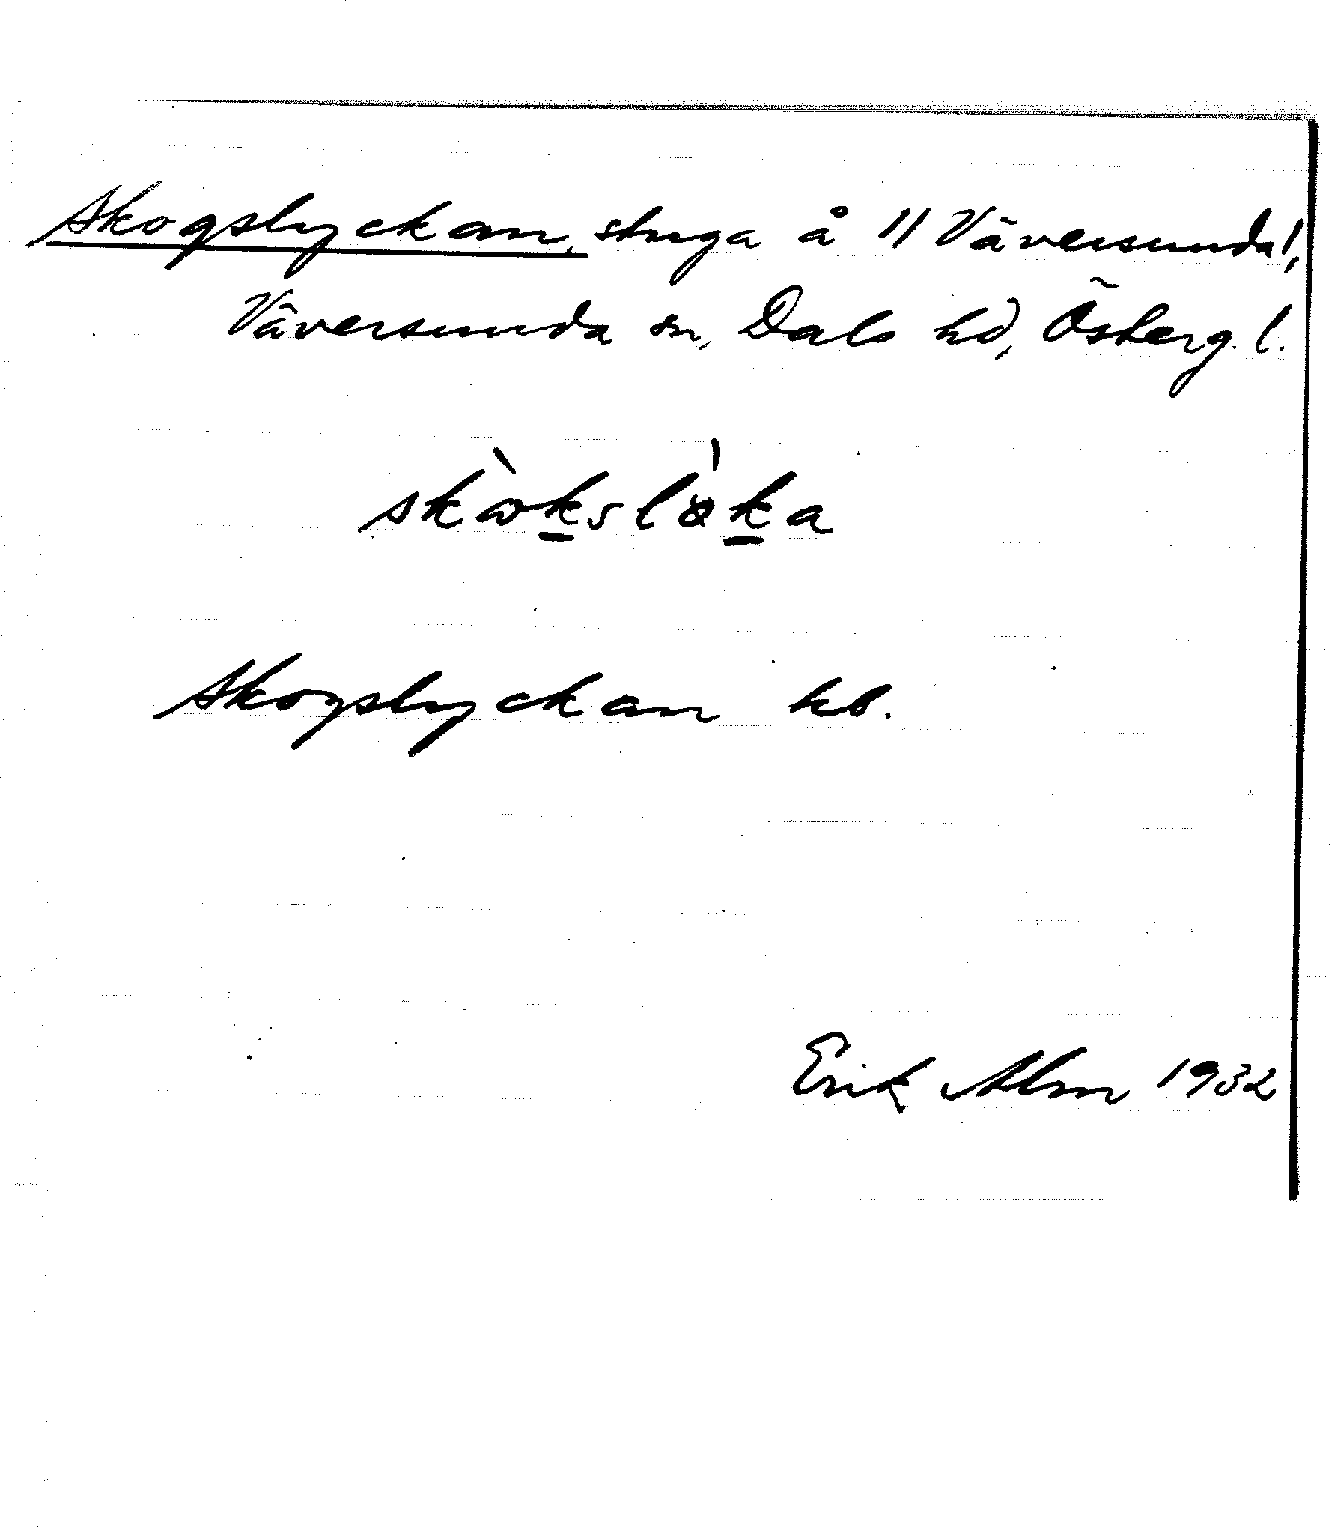 Skogslyckan, stuga å // Väversunda!,
Väversunda sn, Dals hd, Österg. l.
Skogslyckan kb.
Erik Alm 1932